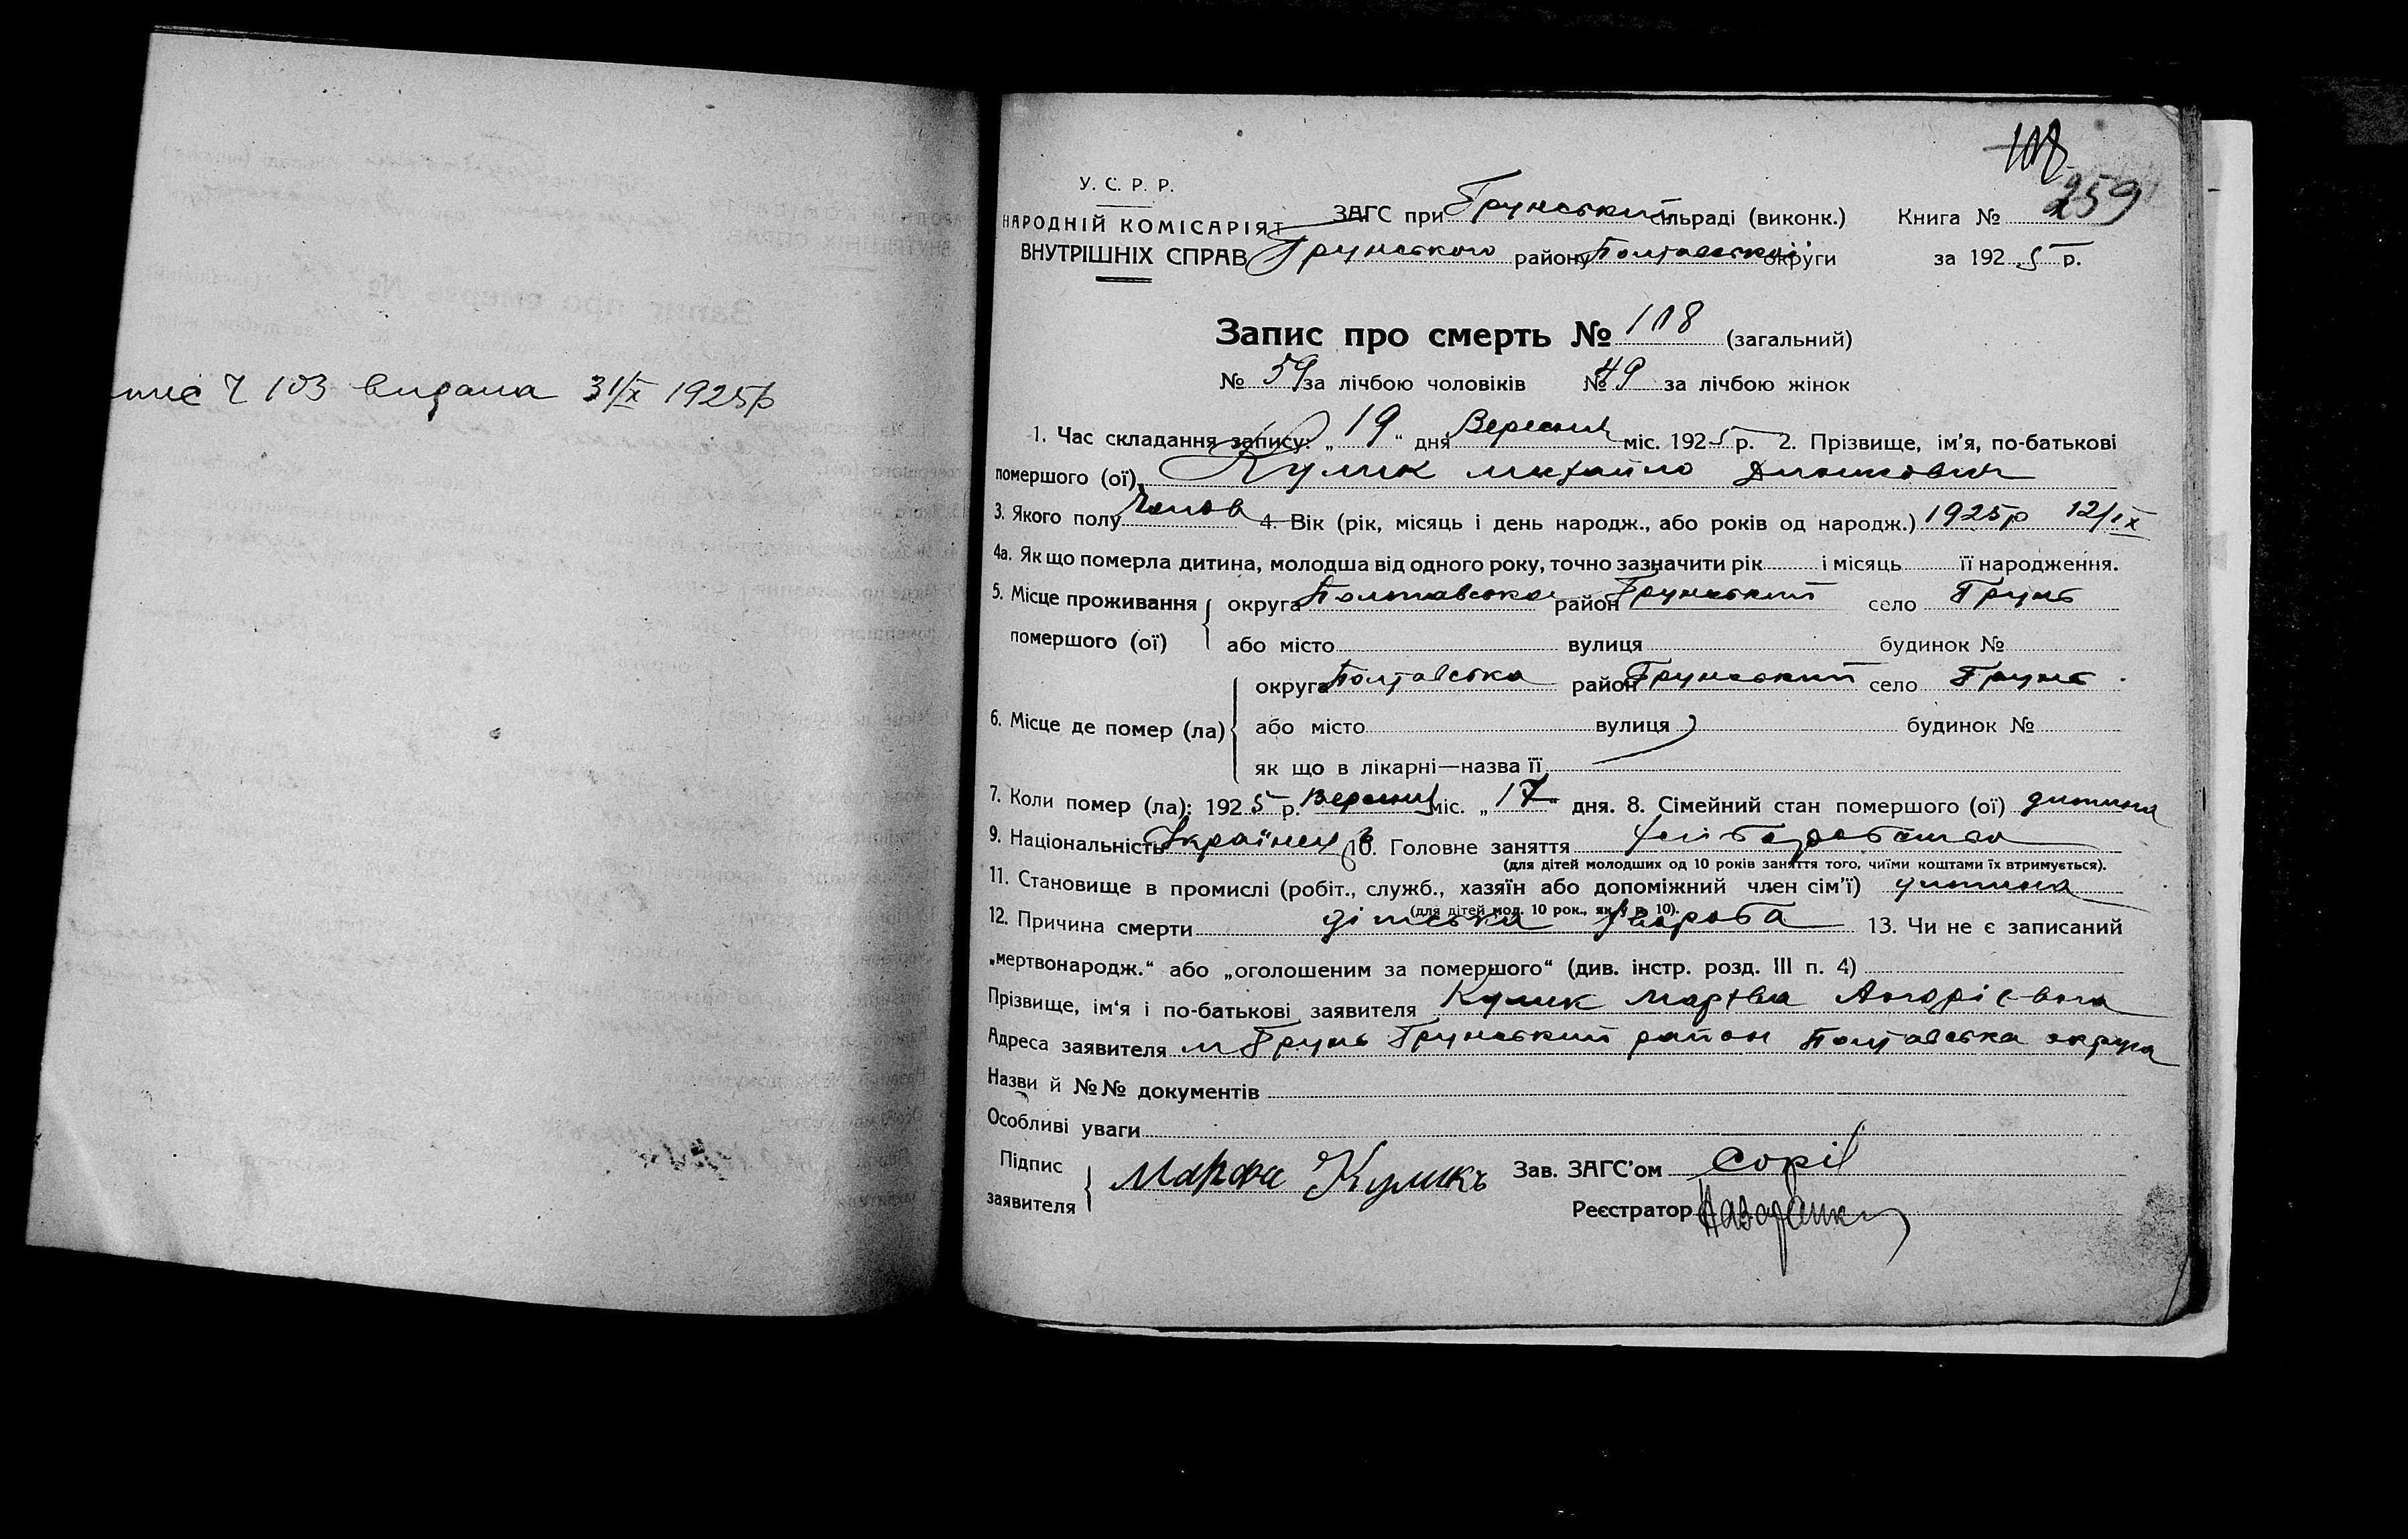 ч 103 видана 31/X 1925р
108
259
У. С. Р. Р.
НАРОДНІЙ КОМІСАРІЯТ
ВНУТРІШНІХ СПРАВ
ЗАГС при Грунський сільраді (виконк.) Книга №
Грунського району Полтавської округи за 1925 р.
Запис про смерть № 108 (загальний)
№ 59 за лічбою чоловіків № 49 за лічбою жінок
1. Час складання запису: „ 19 “ дня Вересня міс. 1925 р. 2. Прізвище, ім'я, по-батькові
помершого (ої) Кулик Михайло
3. Якого полу Чолов 4. Вік (рік, місяць і день народж., або років од народж.) 1925р 12/IX
4а. Як що померла дитина, молодша від одного року, точно зазначити рік і місяць її народження.
5. Місце проживання округа Полтавська район Грунський село Грунь
помершого (ої) або місто вулиця будинок №
округа Полтавська район Грунський село Грунь
6. Місце де помер (ла) або місто вулиця будинок №
як що в лікарні—назва її
7. Коли помер (ла): 1925 р. Вересня міс. „ 17 “ дня. 8. Сімейний стан помершого (ої) дитина
9. Національність Українец 10. Головне заняття хліборобство
(для дітей молодших од 10 років заняття того, чиїми коштами їх втримується).
11. Становище в промислі (робіт., служб., хазяїн або допоміжний член сім'ї) дитина
(для дітей мол. 10 рок., як у п. 10).
12. Причина смерти дітська хвороба 13. Чи не є записаний
„мертвонародж.“ або „оголошеним за помершого“ (див. інстр. розд. III п. 4)
Прізвище, ім'я і по-батькові заявителя Кулик Марфа Андріевна
Адреса заявителя м Грунь Грунський район Полтавська округа
Назви й №№ документів
Особливі уваги
Підпис
заявителя Марфа Куликъ Зав. ЗАГС'ом
Реєстратор